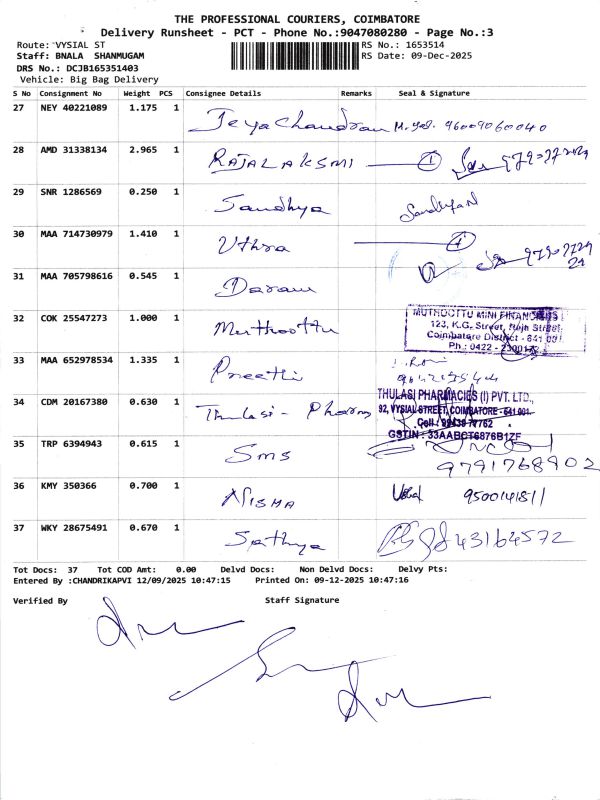 THE PROFESSIONAL COURIERS, COIMBATORE
Delivery Runsheet - PCT - Phone No.:9047080280 - Page No.:3
Route: VYSIAL ST RS No.: 1653514
Staff: BNALA SHANMUGAM RS Date: 09-Dec-2025
DRS No.: DCJB165351403
Vehicle: Big Bag Delivery
S No Consignment No Weight PCS Consignee Details Remarks Seal & Signature
27 NEY 40221089 1.175 1 Jeyachandran 96009060040
28 AMD 31338134 2.965 1 RAJALAKSMI 1
29 SNR 1286569 0.250 1 Sandhya
30 MAA 714730979 1.410 1 Uthra
31 MAA 705798616 0.545 1
32 COK 25547273 1.000 1 Muthoottu
MUTHOOTTU MINI FINANCIERS
123, K.G. Street, Raja Street
Coimbatore District - 641 001
Ph.: 0422 -
33 MAA 652978534 1.335 1 Preethi
34 CDM 20167380 0.630 1 Thulasi - Pharm
THULASI PHARMACIES (I) PVT. LTD.,
92, VYSIAL STREET, COIMBATORE - 641 001.
Cell : 99439 77762
GSTIN : 33AABCT6876B1ZF
35 TRP 6394943 0.615 1 Sms 9791768902
36 KMY 350366 0.700 1 NISMA
37 WKY 28675491 0.670 1 Sathya 43164572
Tot Docs: 37 Tot COD Amt: 0.00 Delvd Docs: Non Delvd Docs: Delvy Pts:
Entered By :CHANDRIKAPVI 12/09/2025 10:47:15 Printed On: 09-12-2025 10:47:16
Verified By Staff Signature